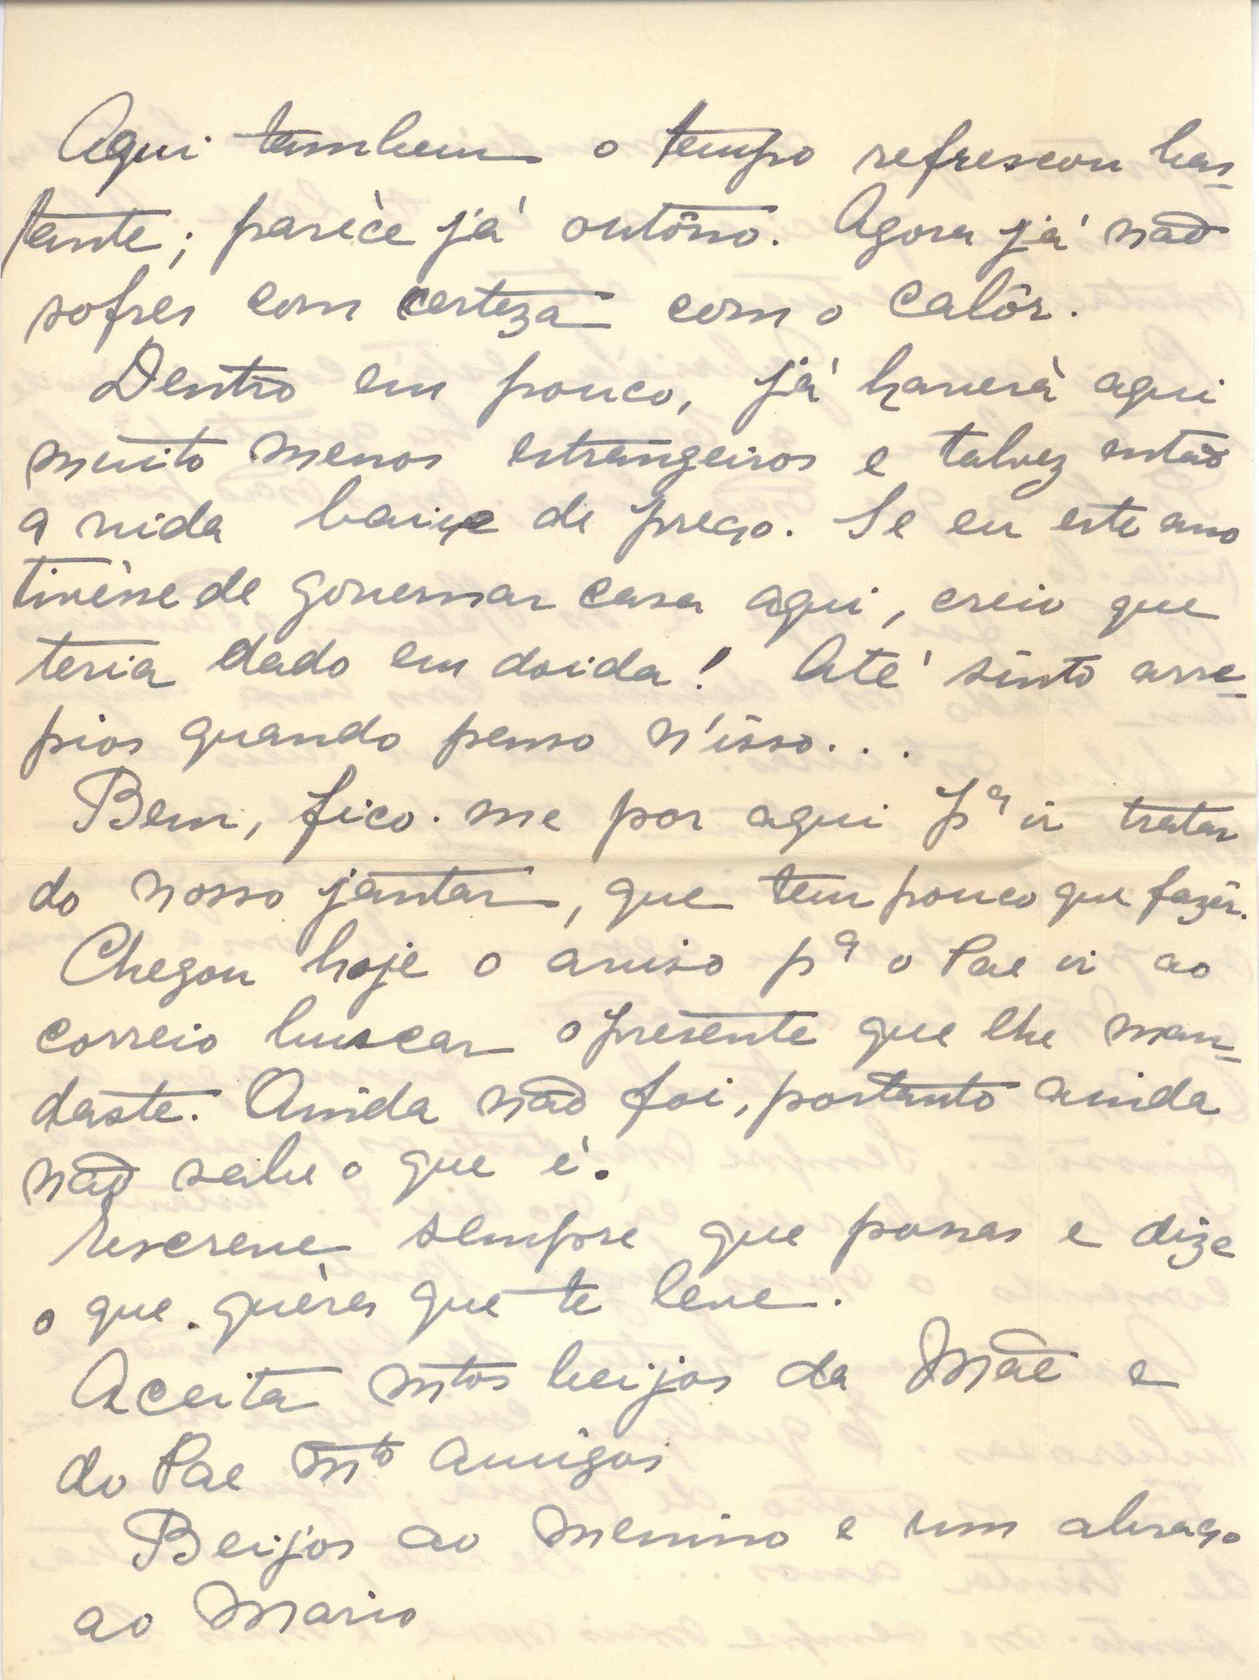 Aqui tambem o tempo refrescou bas-
tante; parèce já outôno. Agora já não
sofres com certeza com o calôr.
Dentro em pouco, já haverà aqui
muito menos estrangeiros e talvez então
a vida baixe de preço. Se eu este ano
tivèsse de governar casa aqui, creio que
teria dado em doida! Até sinto arre-
pios quando penso n'isso...
Bem, fico-me por aqui pª ir tratar
do nosso jantar, que tem pouco que fazêr.
Chegou hoje o aviso pª o Pae ir ao
correio buscar o presente que lhe man-
daste. Ainda não foi, portanto ainda
não sabe o que é.
Escreve sempre que possas e dize
o que quères que te leve.
Aceita mtos beijos da Mãe e
do Pae mto amigos
Beijos ao menino e um abraço
ao Mario